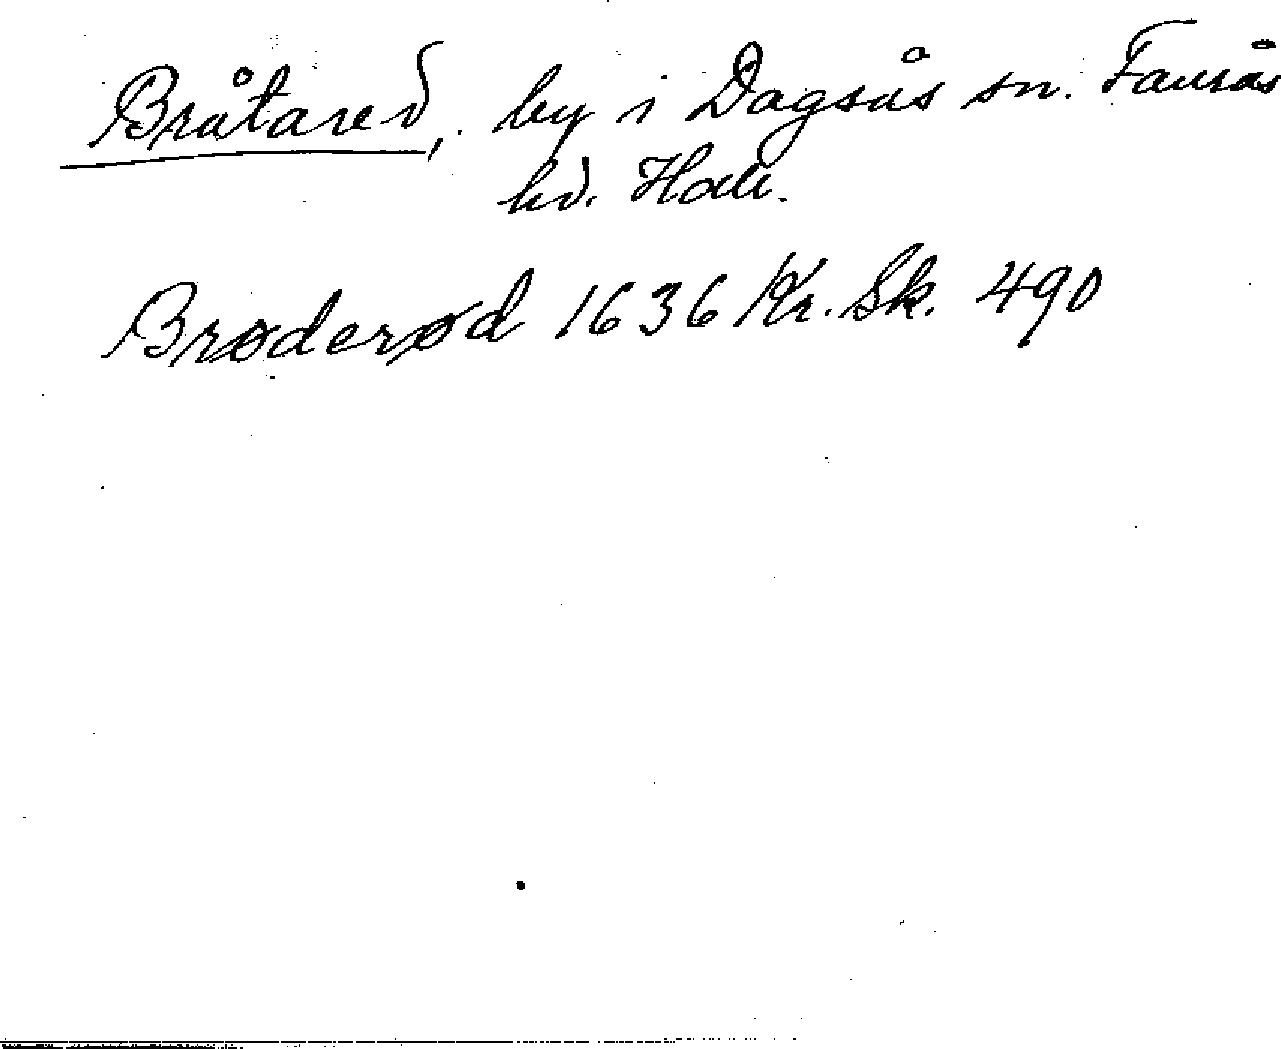 Bråtared, by i Dagsås sn. Faurås
hd. Hall.
Brøderød 1636 Kr. Sk. 490